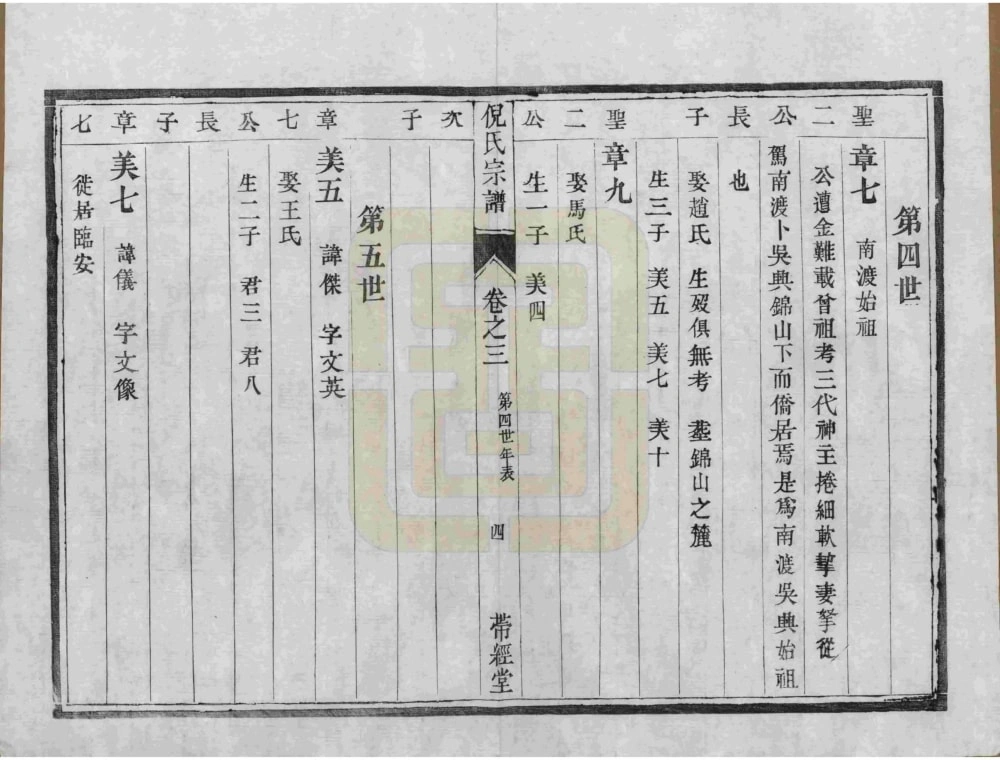 第四世
聖二公長子
章七　南渡始祖
公遭金難載曾祖考三代神主捲細軟挈妻孥從
駕南渡卜吳興錦山下而僑居焉是爲南渡吳興始祖
也
娶趙氏　生歿俱無考　塟錦山之麓
生三子　美五　美七　美十
聖二公次子
章九
娶馬氏
生一子　美四
倪氏宗譜　卷之三　第四世年表　四　帶經堂
第五世
章七公長子
美五　諱傑　字文英
娶王氏
生二子　君三　君八
章七
美七　諱儀　字文像
徙居臨安